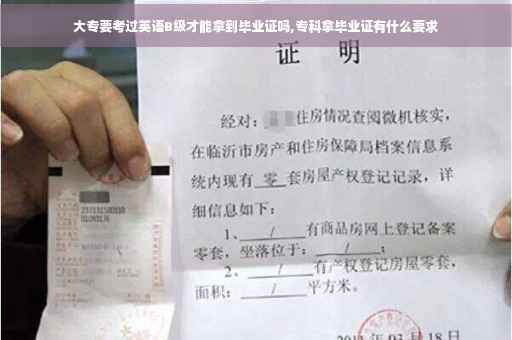 大专要考过英语B级才能拿到毕业证吗,专科拿毕业证有什么要求
证 明
经对: 住房情况查阅微机核实,
在临沂市房产和住房保障局档案信息系
统内现有 零 套房屋产权登记记录, 详
细信息如下:
1、 / 有商品房网上登记备案
零套, 坐落位于: / ;
2、 / 有产权登记房屋零套,
面积: / 平方米。
03 月 18 日